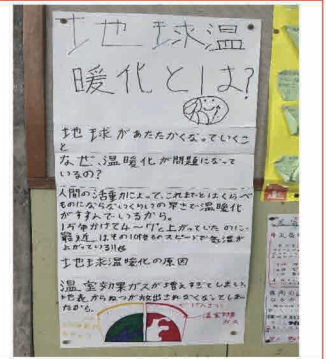 地球温
暖化とは?
地球があたたかくなっていくこ
と
なぜ、温暖化が問題になって
いるの?
人間の活動力によって、これまでとはくらべ
ものにならないくらいの早さで温暖化
がすすんでいるから。
1万年かけて4〜7℃上がっていたのに、
最近はその10倍ものスピードで気温が
上がっている!!
地球温暖化の原因
温室効果ガスが増えすぎてしまい、
地表からねつが放出されなくなってしま
たから。
温室効果
ガス